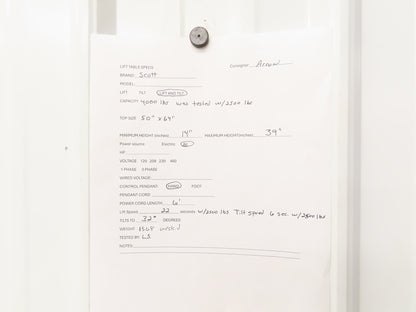 LIFT TABLE SPECS Consignor Accow
BRAND Scott
MODEL
LIFT TILT LIFT AND TILT
CAPACITY 4000 lbs was tested w/2500 lbs
TOP SIZE 50" x 64"
MINIMUM HEIGHT (inches) 14" MAXIMUM HEIGHT (inches) 39"
Power source Electric Air
HP
VOLTAGE 120 208 230 460
1 PHASE 3 PHASE
WIRED VOLTAGE:
CONTROL PENDANT: HAND FOOT
PENDANT CORD
POWER CORD LENGTH: 6'
Lift Speed 22 seconds w/2500 lbs Tilt speed 6 sec w/2500 lbs
TILTS TO 32° DEGREES
WEIGHT 1568
TESTED BY: L.S.
NOTES: